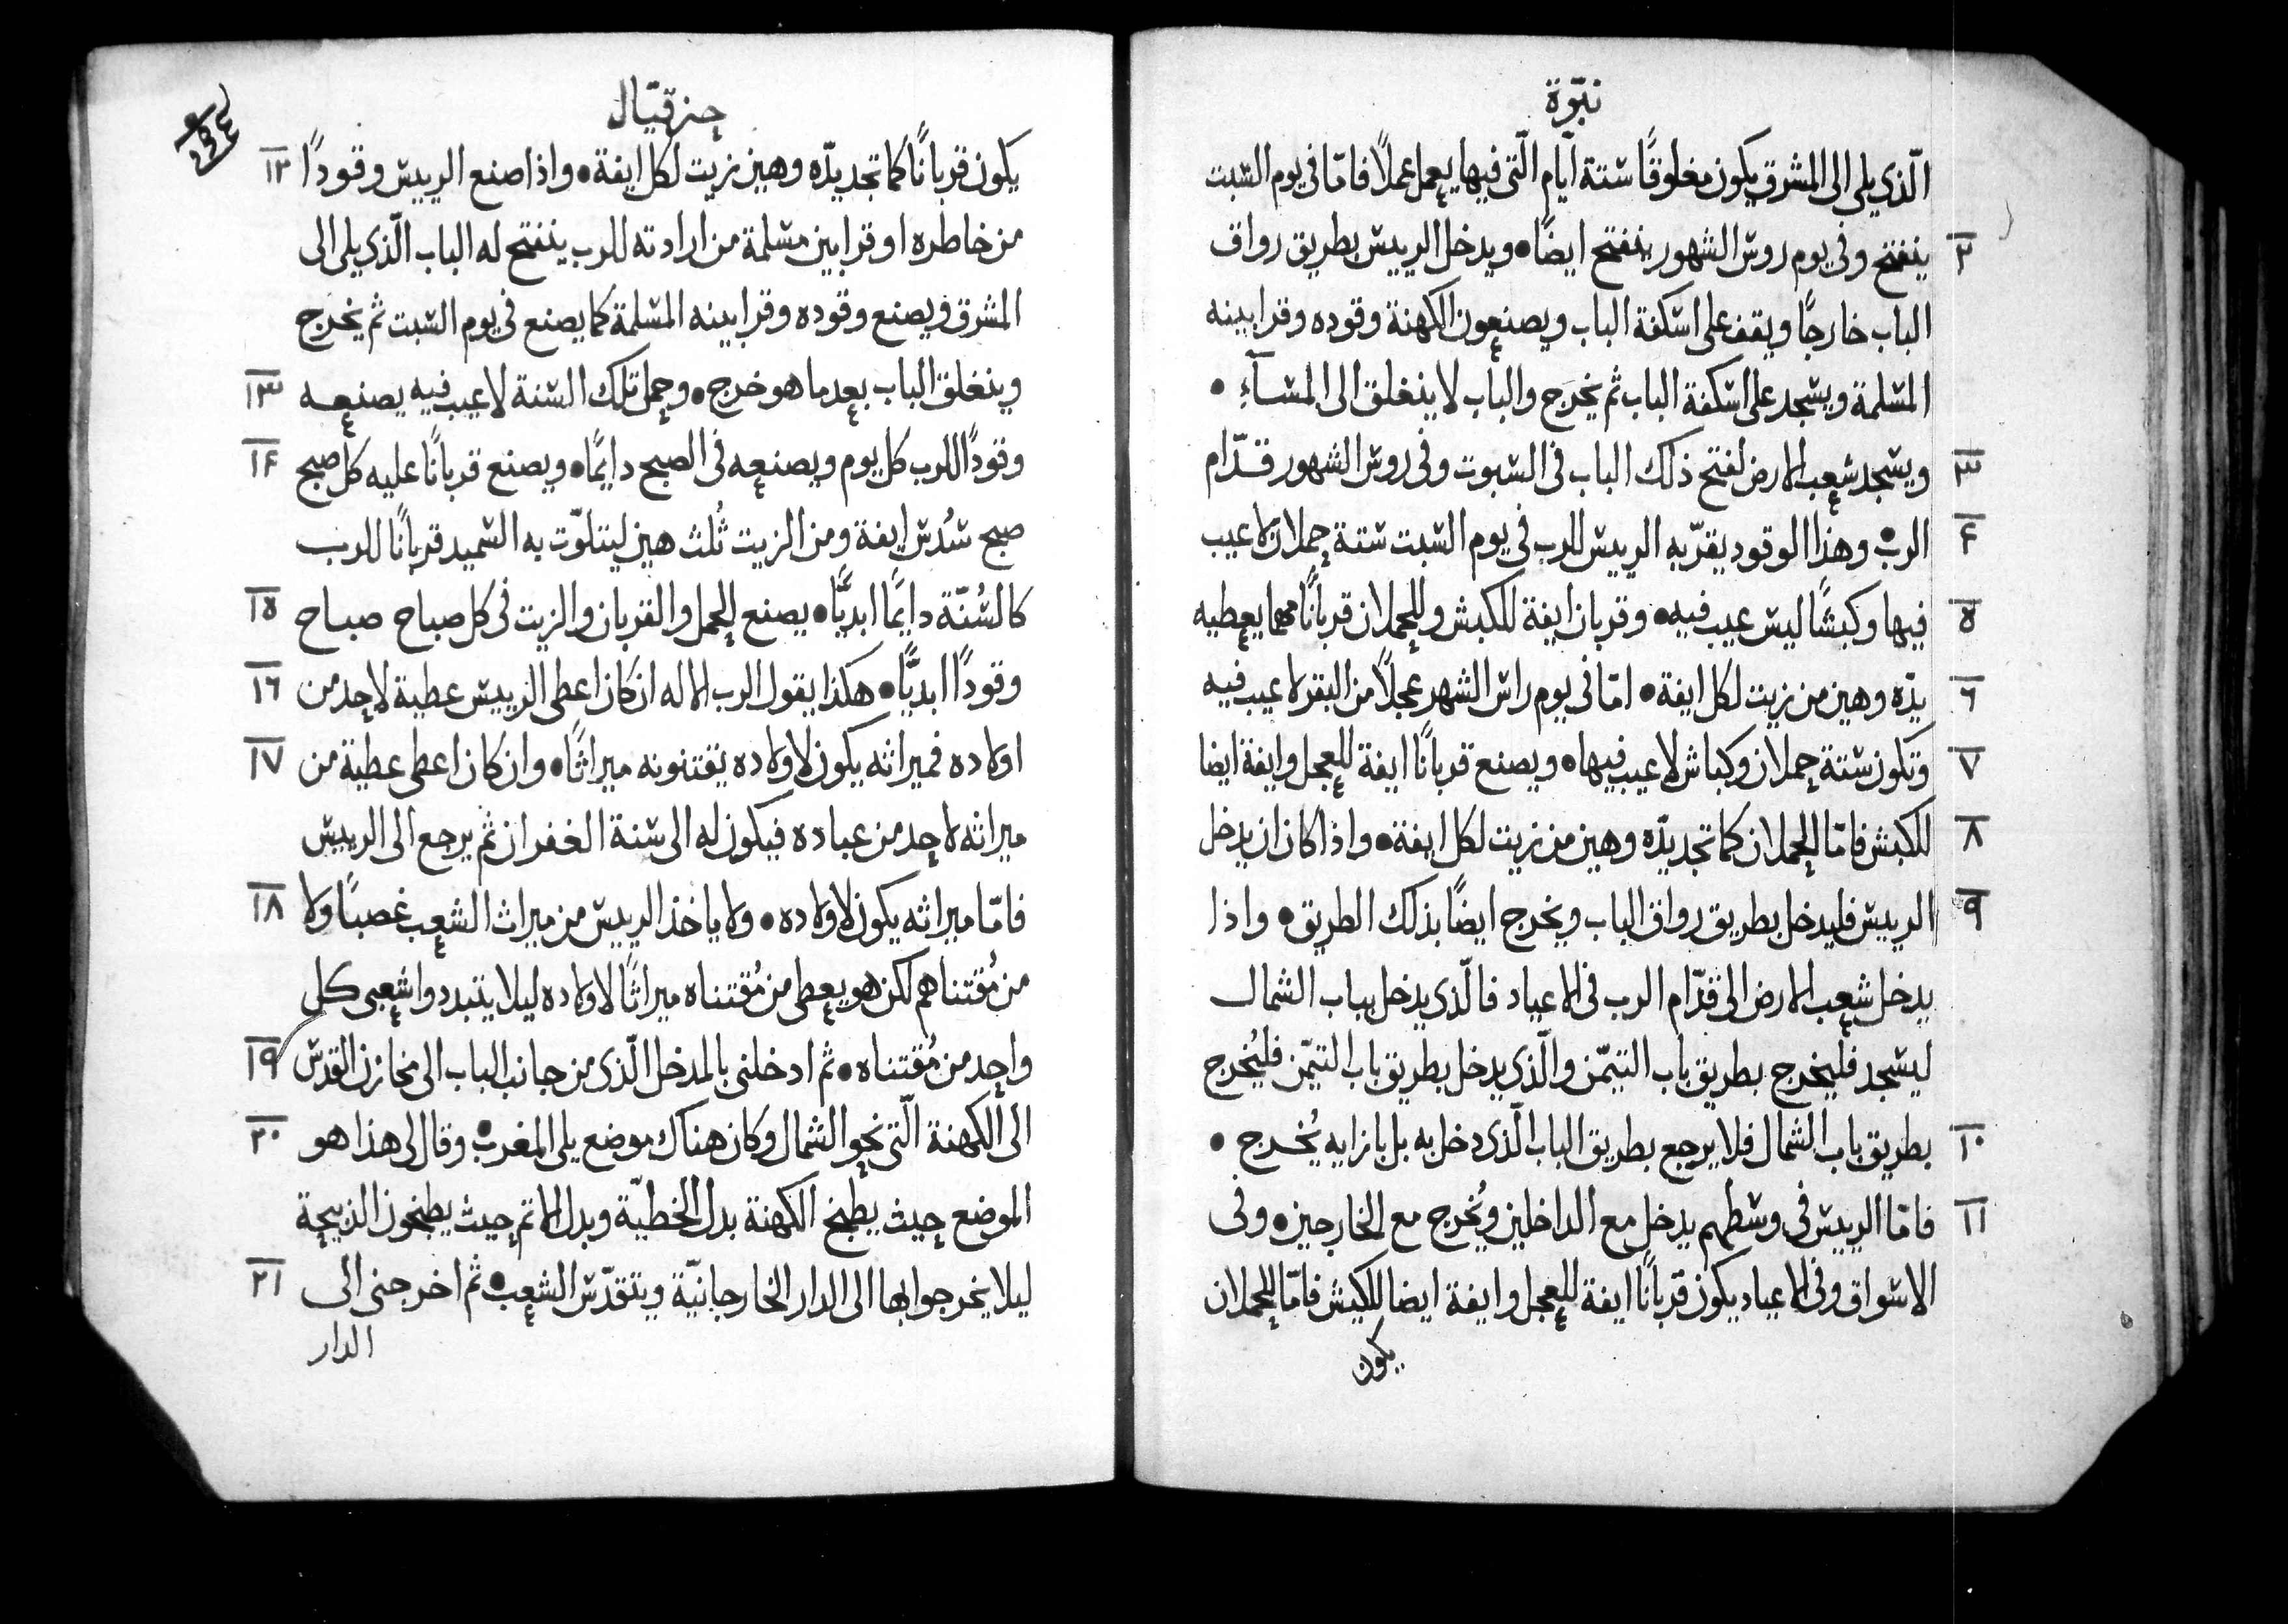 نبّوة
الّذي يلي الى المشرق يكون مغلوقًا ستة ايّام الّتي فيها يعمل عملًا فامّا في يوم السبت
٢ ينفتح وفي يوم روس الشهور ينفتح ايضًا• ويدخل الرييس بطريق رواق
الباب خارجًا ويقف على اسكفة الباب ويصنعون الكهنة وقوده وقرابينه
المسلمة ويسجد على اسكفة الباب ثم يخرج والباب لا ينغلق الى المسآءِ •
٣ ويسجد شعب الارض لفتح ذلك الباب في السبوت وفي روس الشهور قدّام
٤ الرب• وهذا الوقود يقرّبه الرييس للرب في يوم السبت ستة حملان لا عيب
٥ فيها وكبشًا ليس عيب فيه• وقربان ايفة للكبش وللحملان قربانًا مهما يعطيه
٦ يدّه وهين من زيت لكل ايفة• امّا في يوم راس الشهر عجلًا من البقر لا عيب فيه
٧ وتكون ستة حملان وكباش لا عيب فيها• ويصنع قربانًا ايفة للعجل وايفة ايضا
٨ للكبش فامّا للحملان كما تجد يدّه وهين من زيت لكل ايفة• واذا كان ان يدخل
٩ الرييس فليدخل بطريق رواق الباب ويخرج ايضًا بذلك الطريق• واذا
يدخل شعب الارض الى قدّام الرب في الاعياد فالّذي يدخل بباب الشمال
ليسجد فليخرج بطريق باب التيمّن والّذي يدخل بطريق باب التيمّن فليُخرج
١٠ بطريق باب الشمال فلا يرجع بطريق الباب الّذي دخل به بل بازايه يُخرج •
١١ فامّا الرييس في وسطهم يدخل مع الداخلين ويُخرج مع الخارجين• وفي
الاسواق وفي الاعياد يكون قربانًا ايفة للعجل وايفة ايضا للكبش فامّا للحملان
يكون
حزقيّال
١٢ يكون قربانًا كما تجد يدّه وهين زيت لكل ايفة• واذا صنع الرييس وقودًا
من خاطره او قرابين مسلمة من ارادته للرب ينفتح له الباب الّذي يلي الى
المشرق ويصنع وقوده وقرابينه المسلمة كما يصنع في يوم السبت ثم يخرج
١٣ وينغلق الباب بعد ما هو خرج• وحمل تلك السنة لا عيب فيه يصنعه
١٤ وقودًا للرب كل يوم ويصنعه في الصبح دايمًا• ويصنع قربانًا عليه كل صبح
صبح سُدس ايفة ومن الزيت ثُلث هين ليتلوّت به السميد قربانًا للرب
١٥ كالسُنّة دايمًا ابديًّا• يصنع الحمل والقربان والزيت في كل صباح صباح
١٦ وقودًا ابديًّا• هكذا يقول الرب الاله ان كان اعطى الرييس عطية لاحد من
١٧ اولاده فميراثه يكون لاولاده يقتنونه ميراثًا• وان كان اعطى عطية من
ميراثه لاحد من عباده فيكون له الى سنة الغفران ثم يرجع الى الرييس
١٨ فامّا ميراثه يكون لاولاده• ولا ياخذ الرييس من ميراث الشعب غصبًا ولا
من مُقتناهم لكن هو يعطي من مُقتناه ميراثًا لاولاده ليلا يتبددوا شعبي كل
١٩ واحد من مُقتناه• ثم ادخلني بالمدخل الّذي من جانب الباب الى مخازن القدس
٢٠ الى الكهنة الّتي نحو الشمال وكان هناك موضع يلي المغرب• وقال لي هذا هو
الموضع حيث يطبخ الكهنة بدل الخطيّة وبدل الاثم حيث يطبخون الذبيحة
٢١ ليلا يخرجوا بها الى الدار الخارجانيّة ويتقدّس الشعب• ثم اخرجني الى
الدار